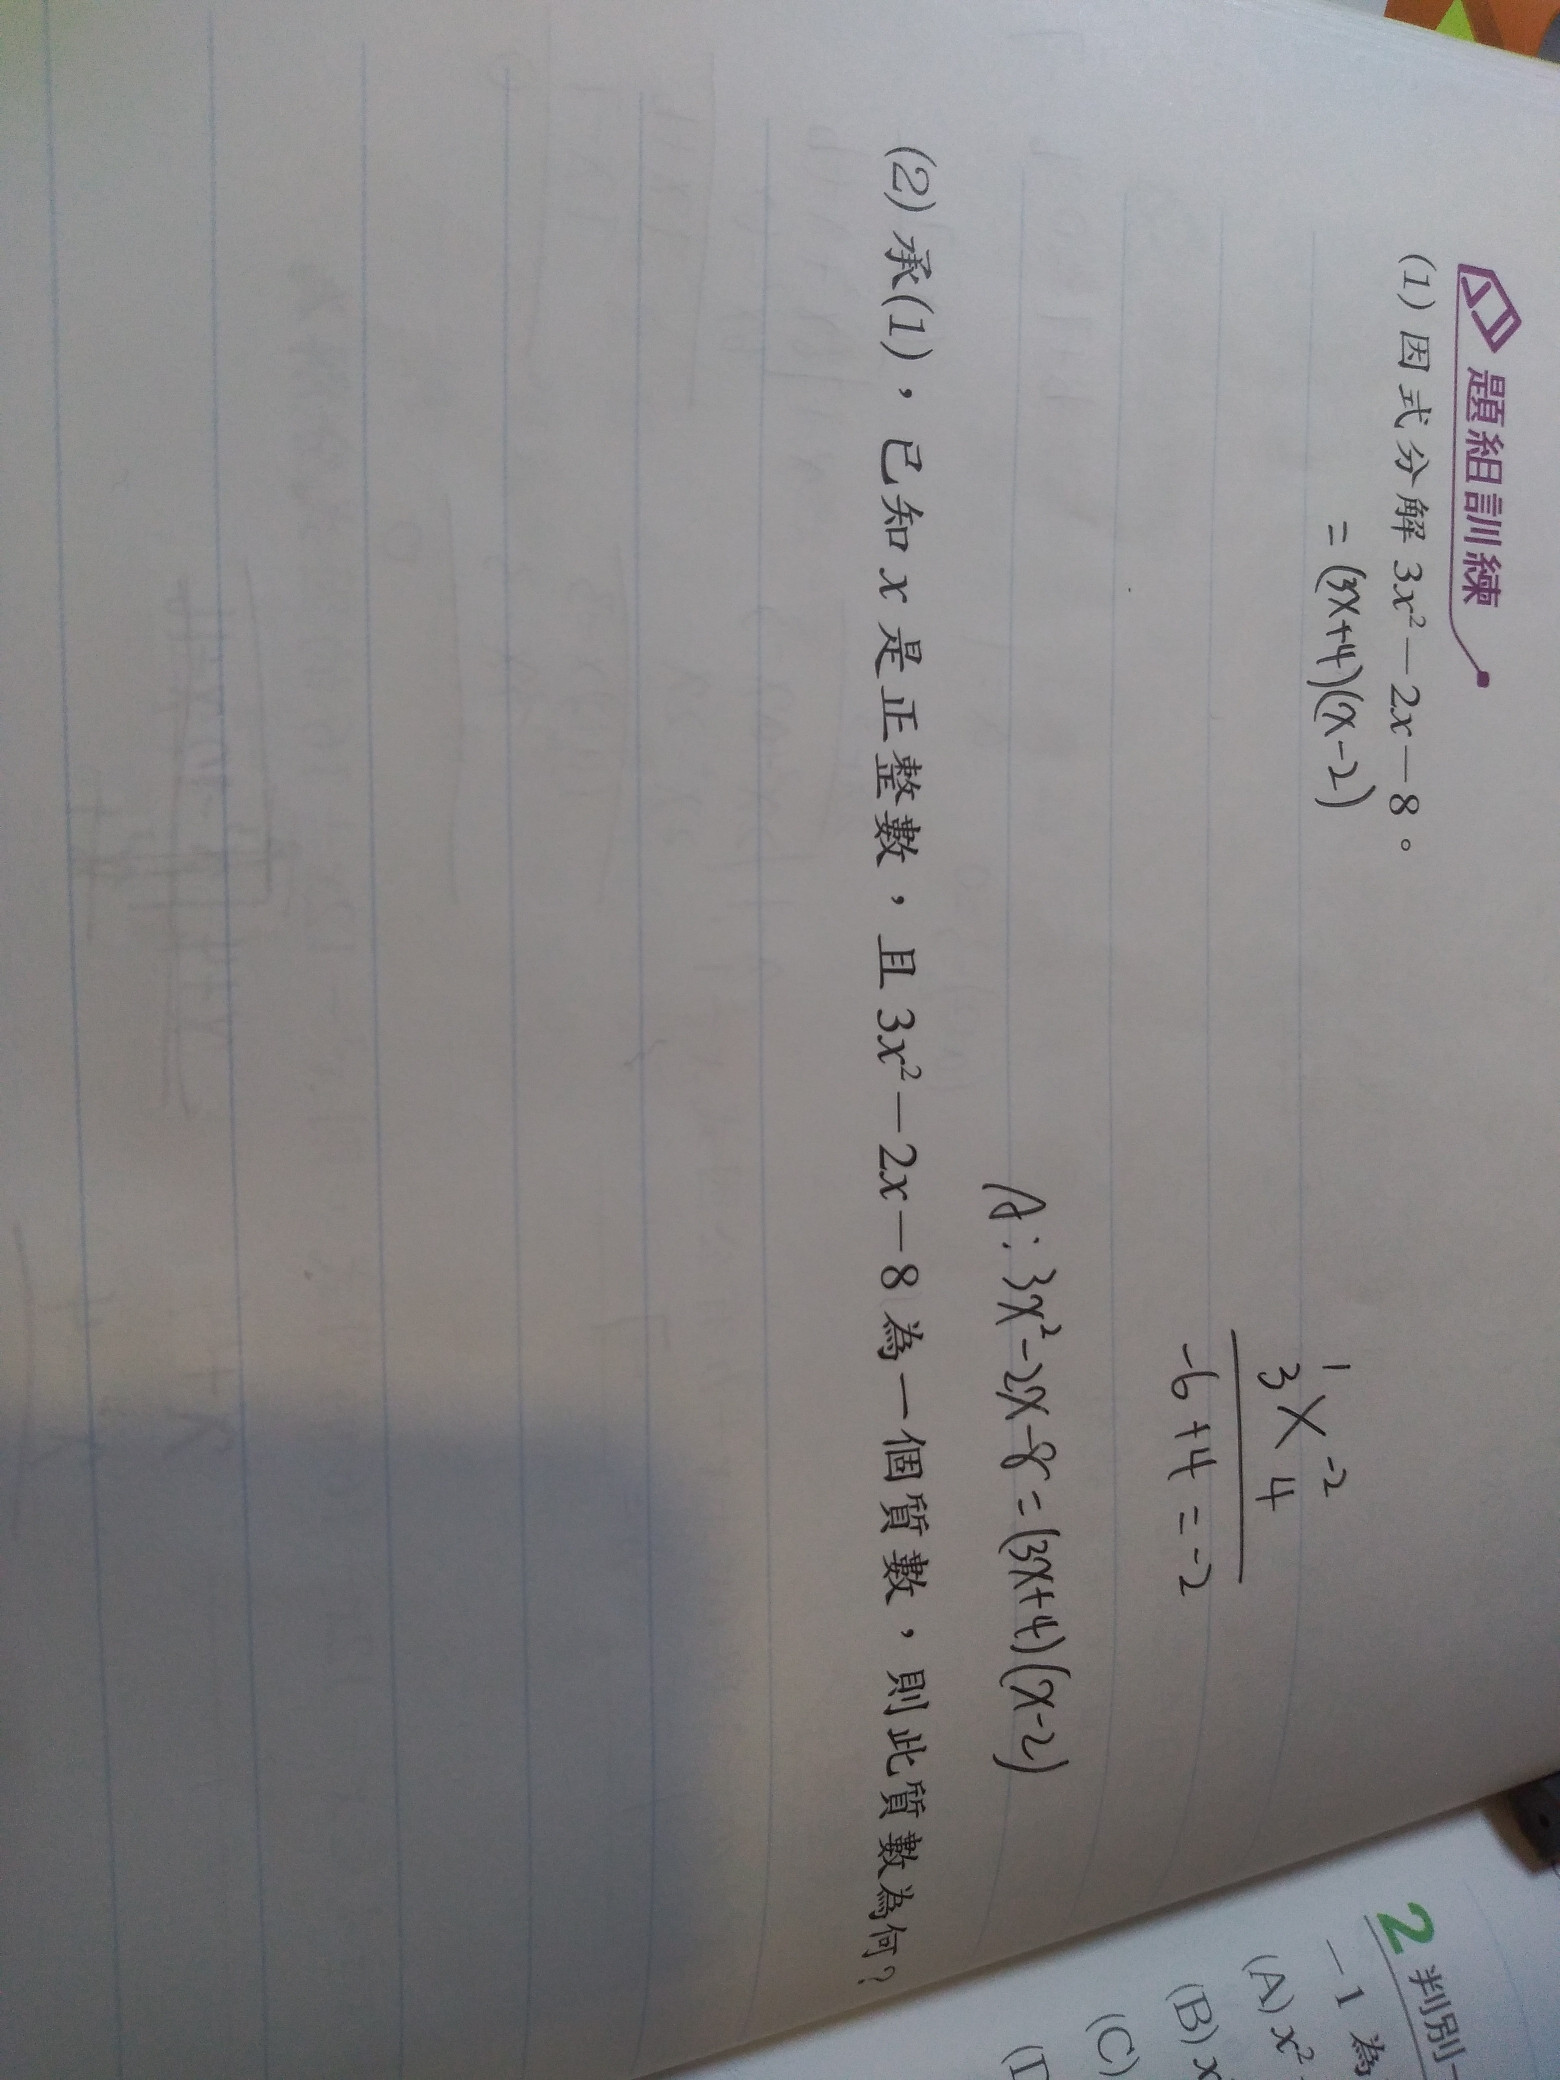 題組訓練
(1) 因式分解 3x²－2x－8。
= (3x+4)(x-2)
1 -2
3 4
-6+4=-2
A: 3x²-2x-8=(3x+4)(x-2)
(2) 承(1)，已知 x 是正整數，且 3x²－2x－8 為一個質數，則此質數為何？
2 判別
－1 為
(A) x²
(B) x
(C)